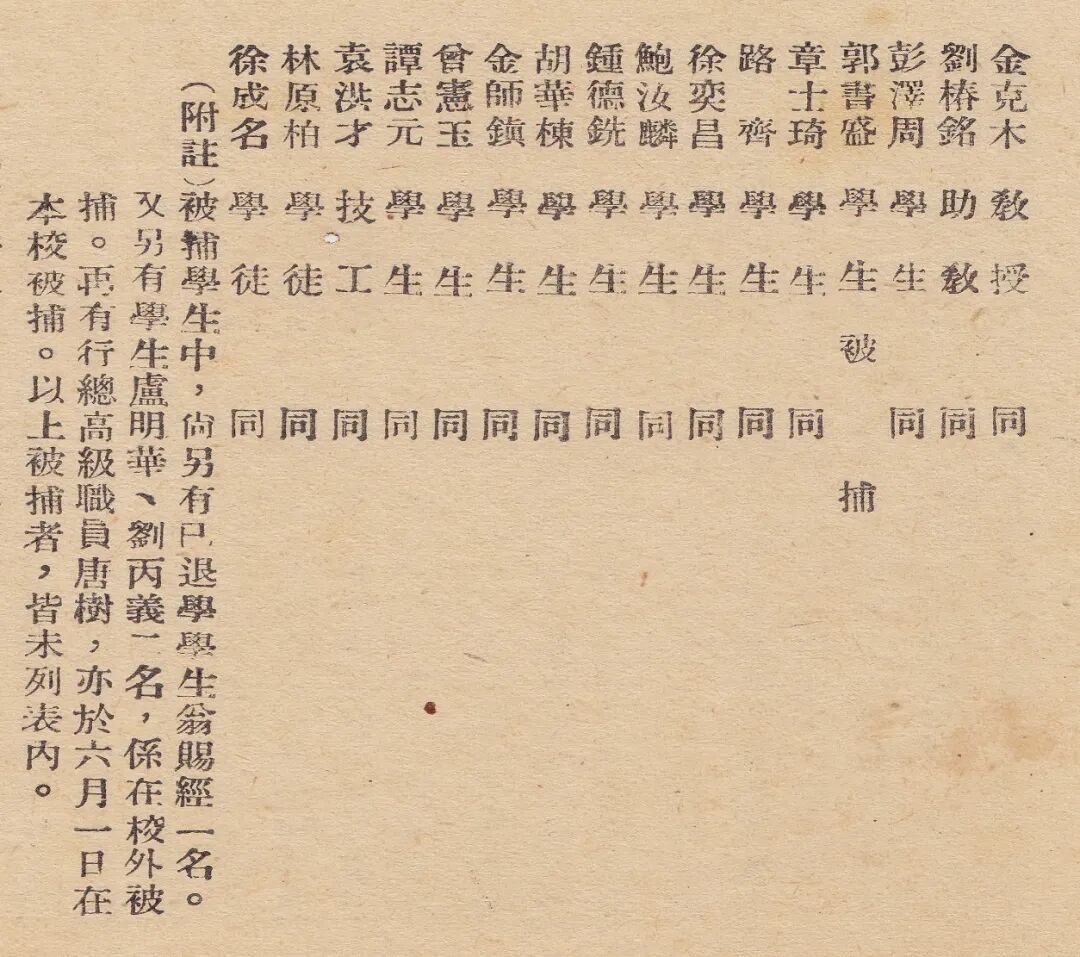 金克木 教授 同
劉椿銘 助教 同
彭澤周 學生 同
郭書盛 學生 被捕
章士琦 學生 同
路齊 學生 同
徐奕昌 學生 同
鮑汝麟 學生 同
鍾德銑 學生 同
胡華棟 學生 同
金師鎮 學生 同
曾憲玉 學生 同
譚志元 學生 同
袁洪才 技工 同
林原柏 學徒 同
徐成名 學徒 同
（附註）被捕學生中，尙另有已退學學生翁賜經一名。
又另有學生盧明華、劉丙義二名，係在校外被
捕。再有行總高級職員唐樹，亦於六月一日在
本校被捕。以上被捕者，皆未列表內。